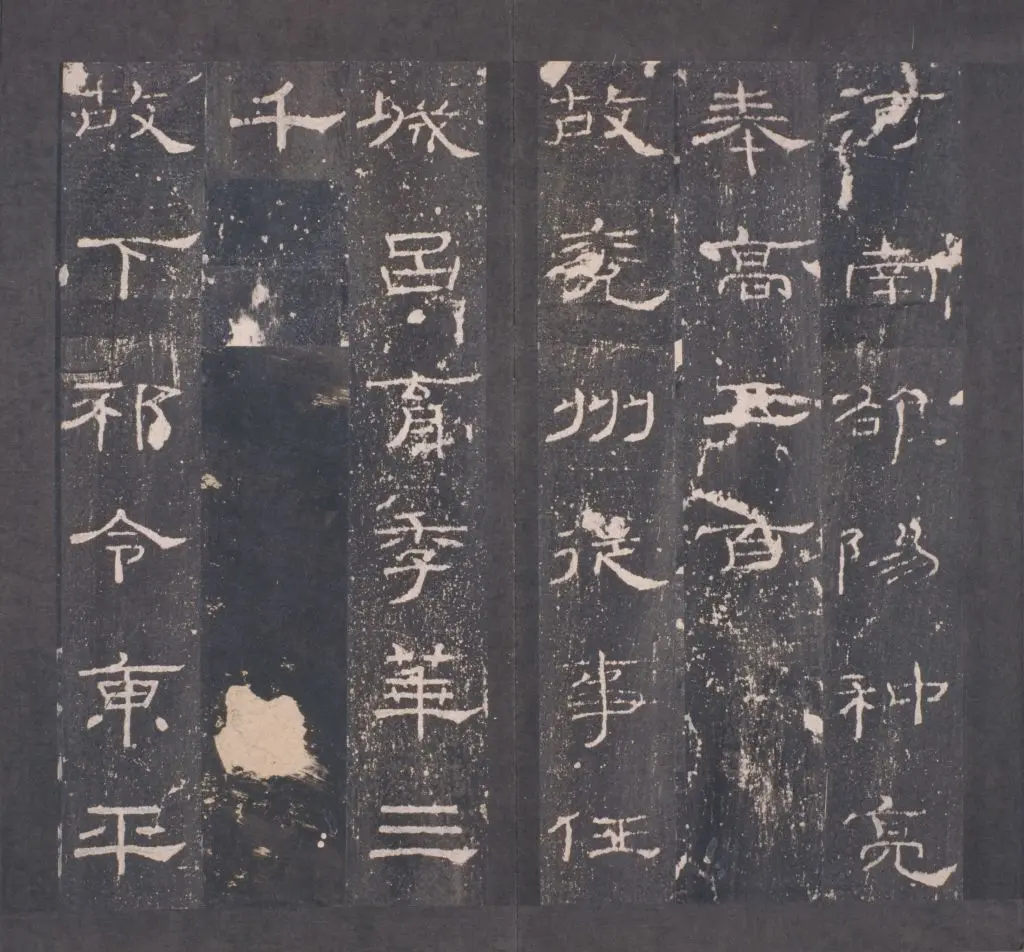 河南雒陽种亮
奉高五百
故兗州從事任
城呂育季華三
千
故下邳令東平